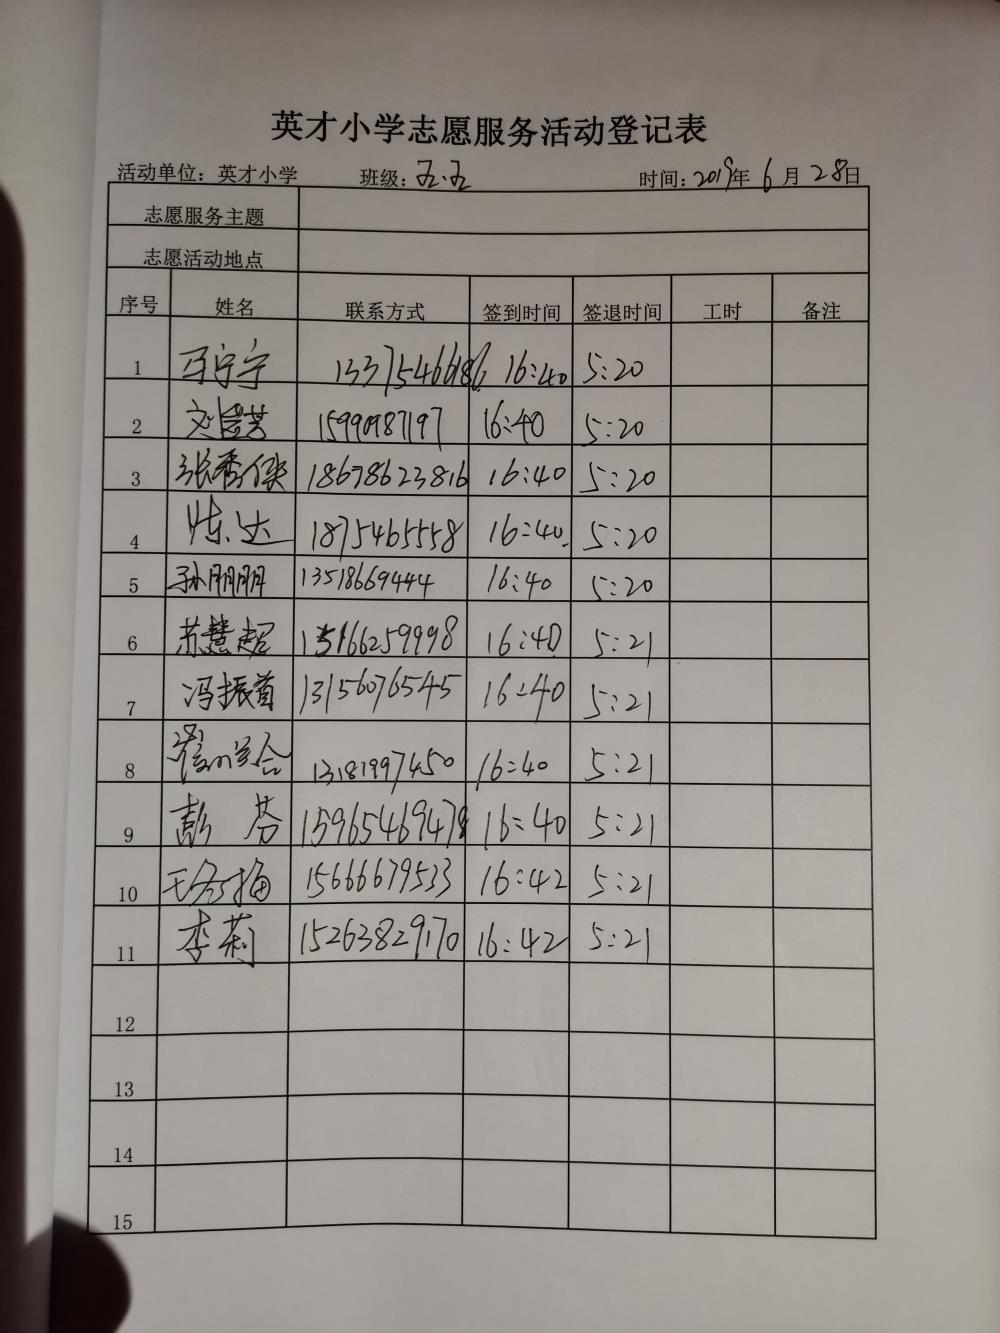 英才小学志愿服务活动登记表
活动单位：英才小学 班级：五.五 时间：2019年 6月 28日
志愿服务主题
志愿活动地点
序号 姓名 联系方式 签到时间 签退时间 工时 备注
1 马宁宁 16:40 5:20
2 15990987197 16:40 5:20
3 张秀侠 18678623816 16:40 5:20
4 陈达 18754655558 16:40 5:20
5 孙朋朋 13518669444 16:40 5:20
6 苏慧超 15166259998 16:40 5:21
7 冯振首 13156076545 16:40 5:21
8 13181997450 16:40 5:21
9 彭芬 15965469478 16:40 5:21
10 15666679533 16:42 5:21
11 李莉 15263829170 16:42 5:21
12
13
14
15